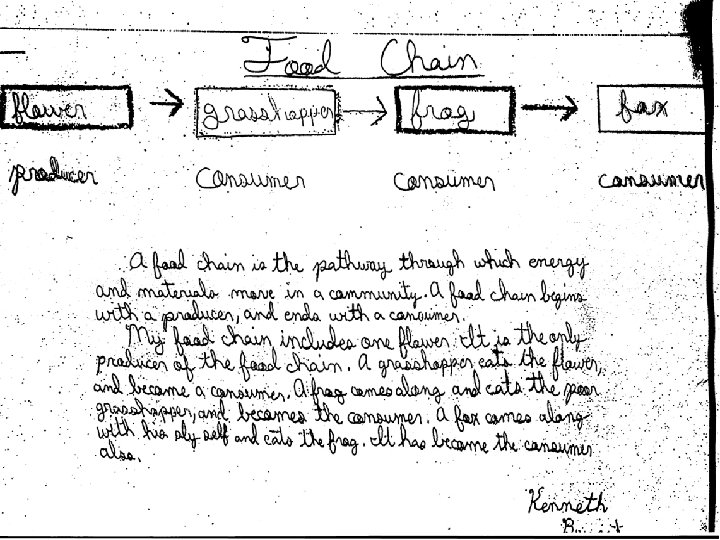 Food Chain
flower grasshopper frog fox
producer consumer consumer consumer
A food chain is the pathway through which energy
and materials move in a community. A food chain begins
with a producer, and ends with a consumer.
My food chain includes one flower. It is the only
producer of the food chain. A grasshopper eats the flower,
and became a consumer. A frog comes along and eats the poor
grasshopper, and becomes the consumer. A fox comes along
with his sly self and eats the frog. It has become the consumer
also.
Kenneth